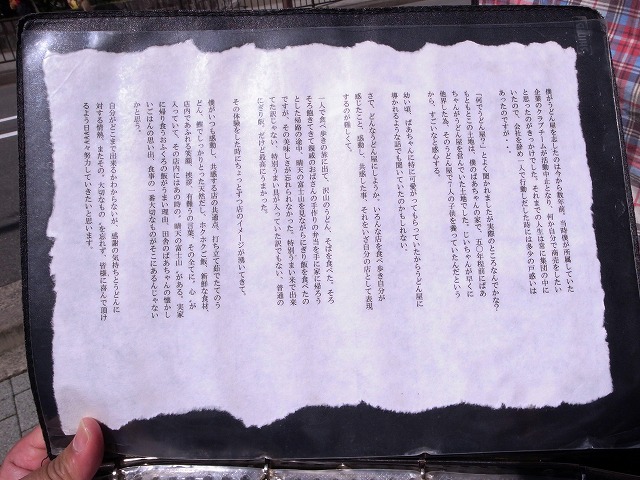 僕がうどん屋を志したのは今から数年前。当時僕が所属していた
企業のクラブチームが活動中止となり、何か自分で商売をしたい
と思ったのがきっかけでした。それまでの人生は常に集団の中に
いたので、会社を辞め、一人で行動しだした時には多少の戸惑いは
あったのですが・・・。
「何でうどん屋?」とよく聞かれますが実際のところなんでかな?
もともとこの土地は、僕のばあちゃんの家で、五〇年程前にばあ
ちゃんがうどん屋を営んでいた土地でした。じいちゃんが早くに
他界した為、そのうどん屋で7人の子供を養っていたんだという
から、すごいなと感心する。
幼い頃、ばあちゃんに特に可愛がってもらっていたからうどん屋に
導かれるような話でも聞いていたのかもしれない。
さて、どんなうどん屋にしようか。いろんな店を食べ歩き自分が
感じたこと、感動し、共感した事、それをいざ自分の店として表現
するのが難しくて。
一人で食べ歩きの旅に出て、沢山のうどん、そばを食べた。そろ
そろ飽きてきて親戚のおばさんの手作りの弁当を手に家に帰ろう
とした帰路の途中、晴天の富士山を見ながらにぎり飯を食べたの
ですが、その美味しさが忘れられなかった。特別うまい米で出来
てた訳じゃない、特別うまい具が入っていた訳でもない、普通の
にぎり飯。だけど最高にうまかった。
その体験をした時にちょっとずつ店のイメージが湧いてきて、
僕がいつも感動し、共感する店の共通点。打ち立て茹でたてのう
どん、鰹でしっかりとった天然だし、ホクホクご飯、新鮮な食材、
店内であふれる笑顔、挨拶、有難うの言葉、その全てに〝心〟が
入っていて、その店内にはあの時の〝晴天の富士山〟がある。実家
に帰り食うおふくろの飯がうまい理由、田舎のばあちゃんの懐かし
いごはんの思い出、食事の一番大切なものがそこにあるんじゃない
かと思う。
自分がどこまで出来るかわからないが、感謝の気持ちとうどんに
対する情熱、またその〝大切なもの〟を忘れず、皆様に喜んで頂け
るよう日々努力していきたいと思います。